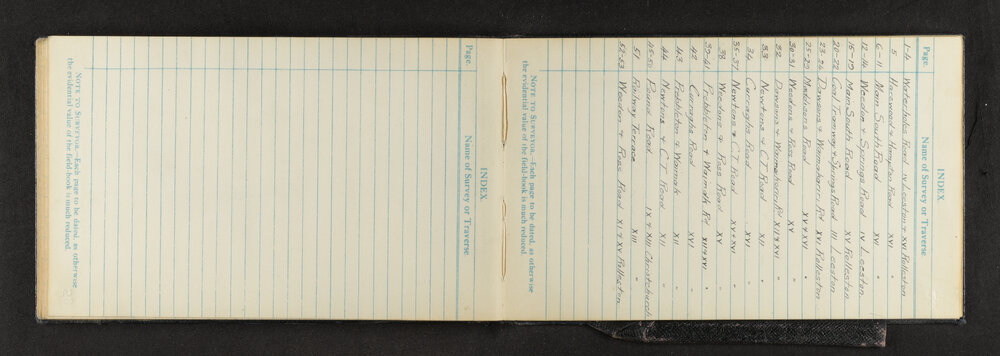 INDEX.
Page. Name of Survey or Traverse.
1-4 Waterholes Road IV Leeston & XVI Rolleston
5 Haswood & Hampton Road XVI "
6-11 Main South Road XVI "
12-14 Weedon & Springs Road IV Leeston
15-19 Main South Road XV Rolleston
20-22 Coal Tramway & Springs Road III Leeston
23-24 Dawsons & Waimakariri Rd. XVI Rolleston
25-29 Maddisons Road XV & XVI "
30-31 Weedons & Ross Road XV "
32 Dawsons & Rd. XII & XVI "
33 Newtons & C.T. Road XII "
34 Curraghs Road XVI "
35-37 Newtons & C.T. Road XV & XVI "
38 Weedons & Ross Road XV "
39-41 Prebbleton & Rd XII & XVI "
42 Curraghs Road XVI "
43 Prebbleton & XII "
44 Newtons & C.T. Road XII "
45-50 Pound Road IX & XIII Christchurch
51 Railway Terrace XIII "
52-53 Weedon & Ross Road XI & XV Rolleston
NOTE TO SURVEYOR.—Each page to be dated, as otherwise
the evidential value of the field-book is much reduced.
INDEX.
Page. Name of Survey or Traverse.
NOTE TO SURVEYOR.—Each page to be dated, as otherwise
the evidential value of the field-book is much reduced.